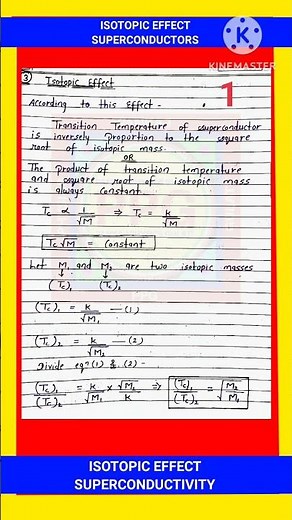 ISOTOPIC EFFECT
SUPERCONDUCTORS
K
KINEMASTER
1
③ Isotopic Effect
According to this Effect -
Transition Temperature of superconductor
is inversely Proportion to the square
root of isotopic mass.
OR
The product of transition temperature
and square root of isotopic mass
is always constant.
Tc ∝ 1/√M ⇒ Tc = k/√M
Tc√M = Constant
Let M₁ and M₂ are two isotopic masses
(Tc)₁ (Tc)₂
(Tc)₁ = k/√M₁ —(1)
(Tc)₂ = k/√M₂ —(2)
Divide eqⁿ (1) & (2) -
(Tc)₁/(Tc)₂ = k/√M₁ × √M₂/k ⇒ (Tc)₁/(Tc)₂ = √M₂/M₁
ISOTOPIC EFFECT
SUPERCONDUCTIVITY